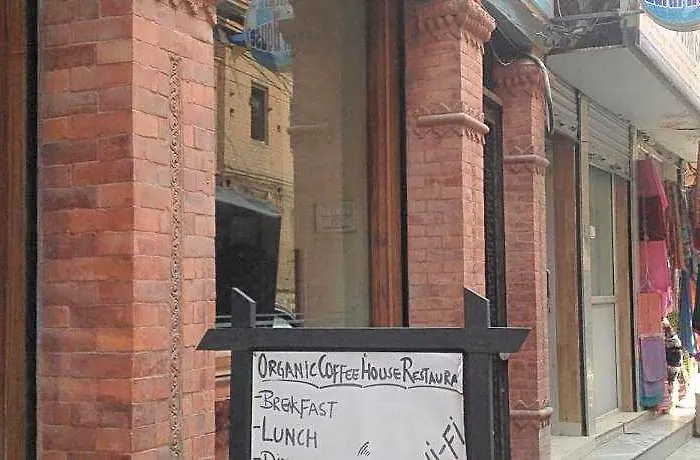 ORGANIC COFFEE HOUSE RESTAURA
-BREKFAST
-LUNCH